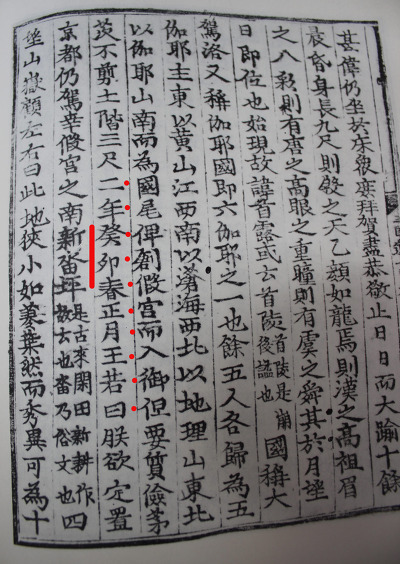 甚偉仍坐於床衆庶拜賀盡恭敬止日日而大踰十餘
晨昏身長九尺則殷之天乙顏如龍焉則漢之高祖眉
之八彩則有唐之高眼之重瞳則有虞之舜其於月望
日即位也始現故諱首露或云首陵首陵是崩後謚也國稱大
駕洛又稱伽耶國即六伽耶之一也餘五人各歸為五
伽耶主東以黃山江西南以滄海西北以地理山東北
以伽耶山南而為國尾俾創假宮而入御但要質儉茅
茨不剪土階三尺二年癸卯春正月王若曰朕欲定置
京都仍駕幸假宮之南新畓坪是古來閑田新耕作故云也畓乃俗文也四
望山嶽顧左右曰此地狹小如蓼葉然而秀異可為十